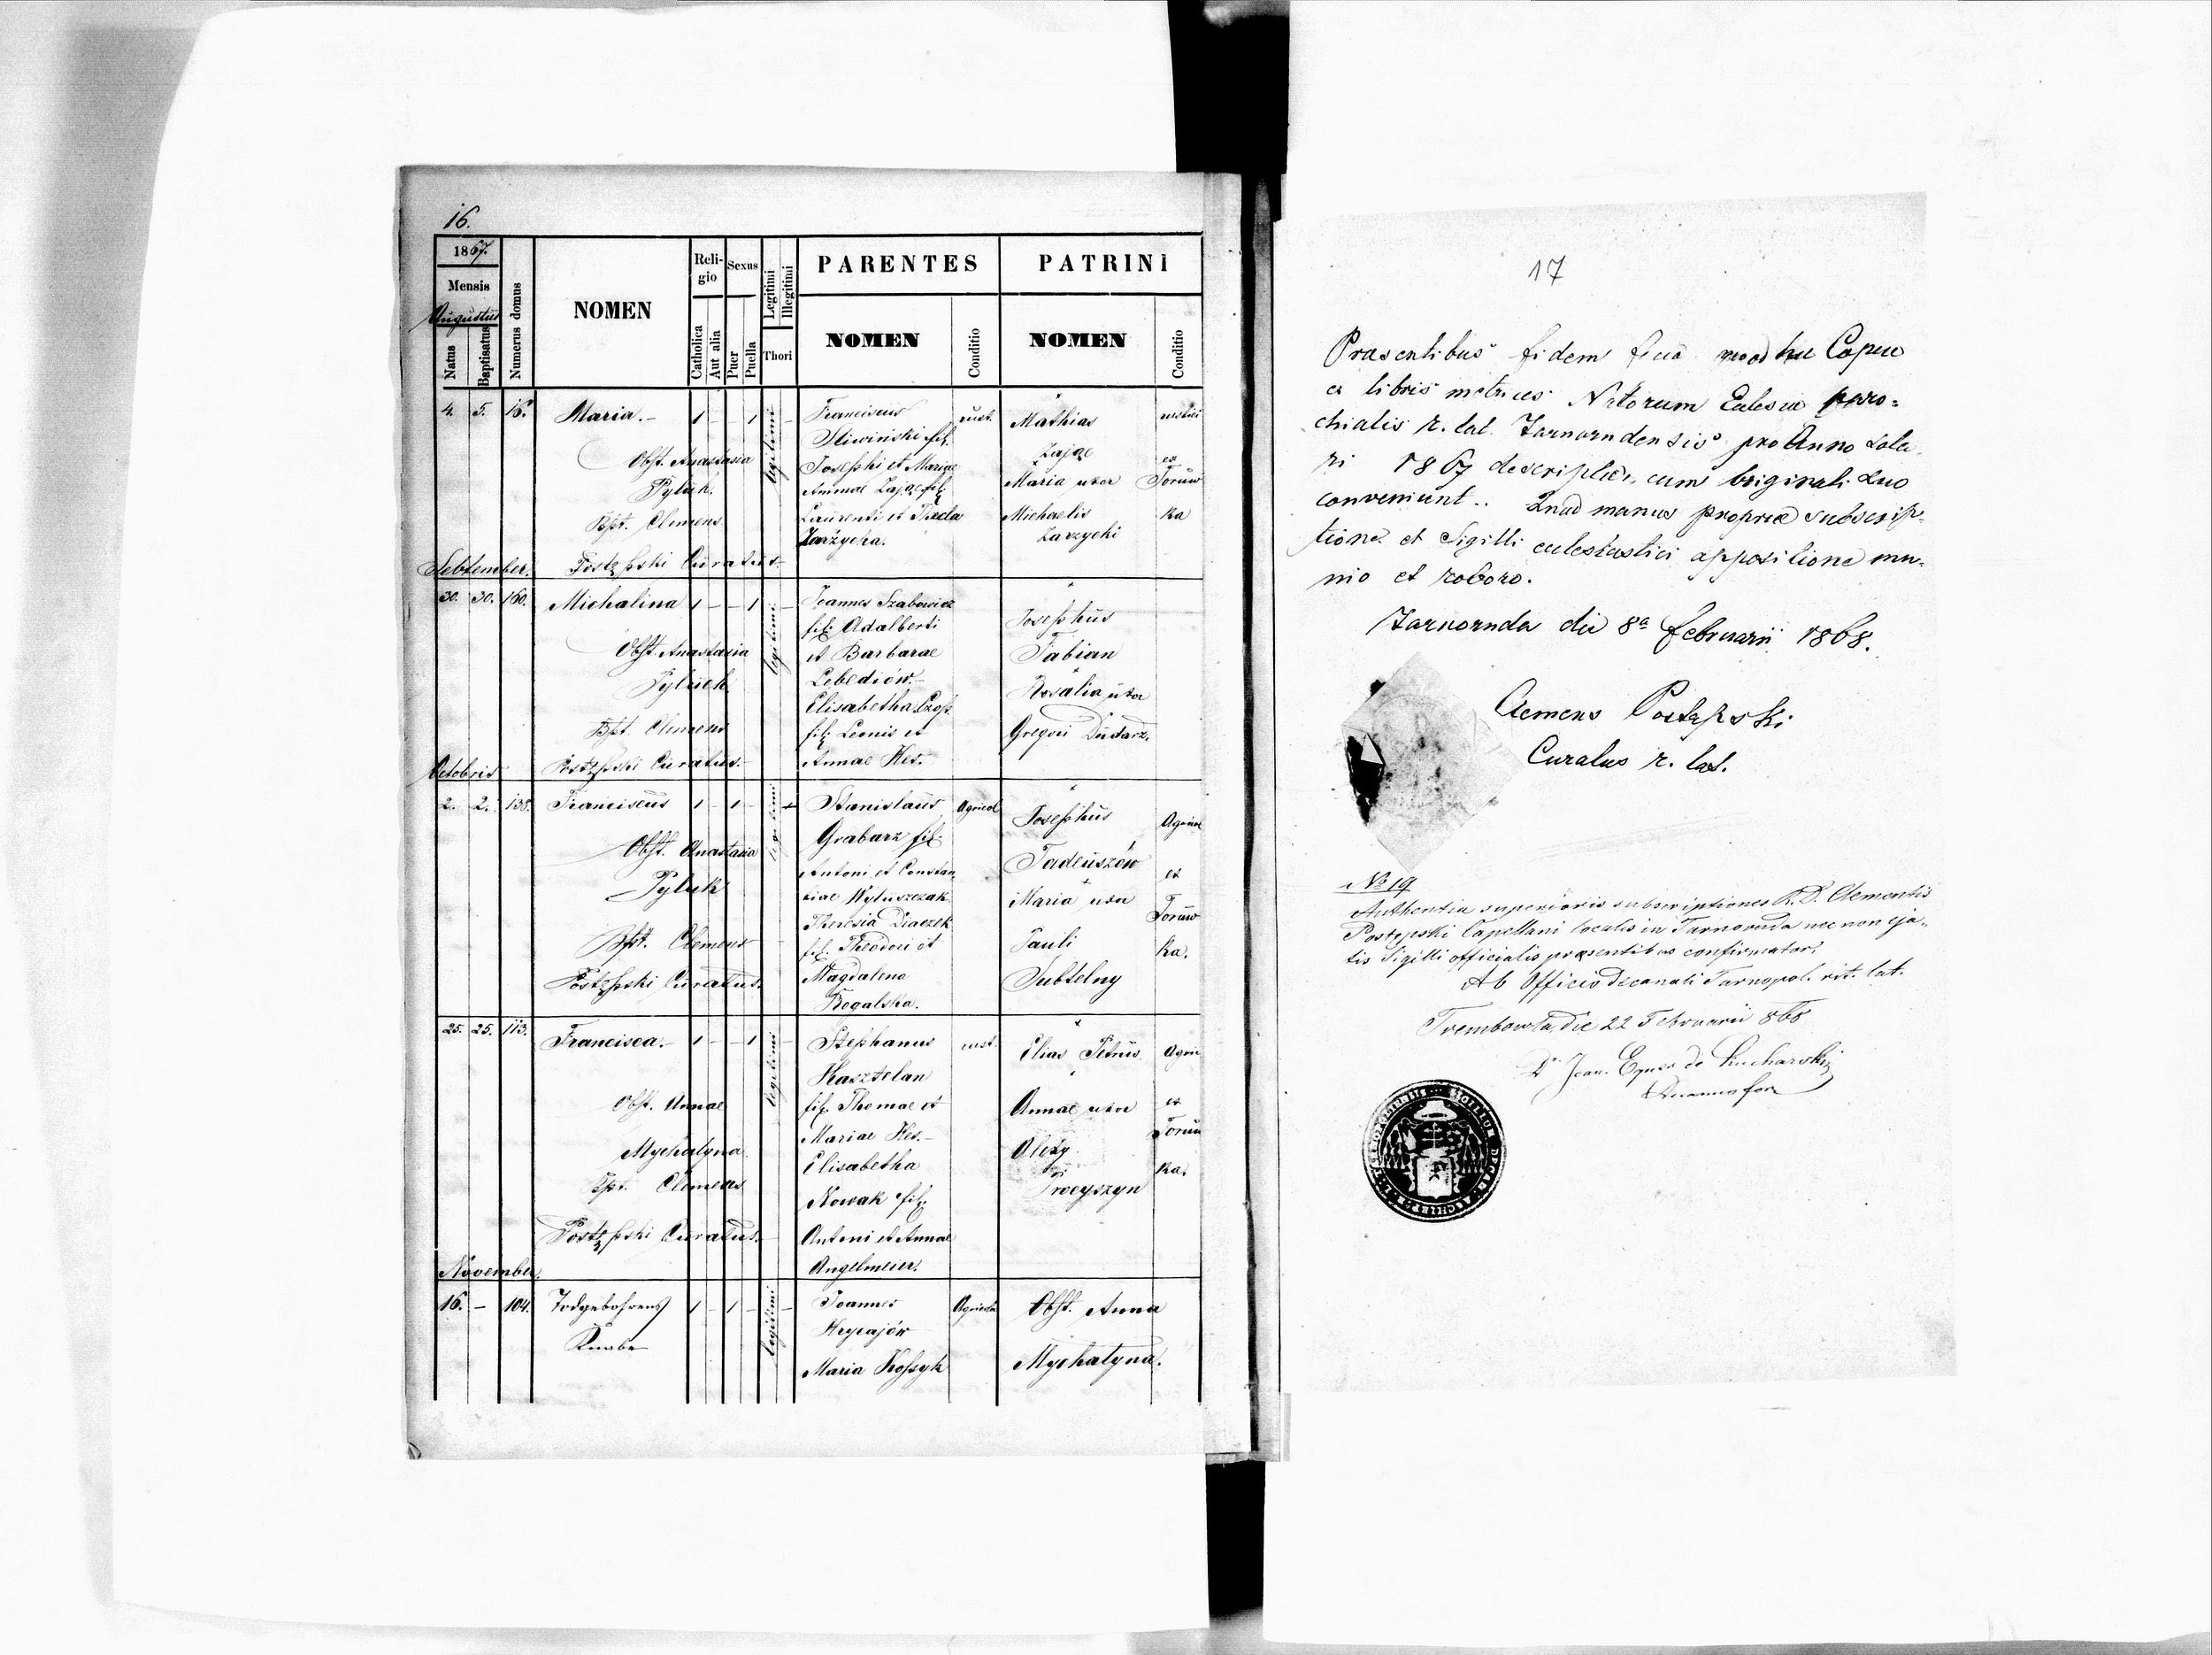 16.
1867.
Mensis
Augustus
Natus
Baptisatus
Numerus domus
NOMEN
Reli-
gio
Catholica
Aut alia
Sexus
Puer
Puella
Legitimi
Illegitimi
Thori
PARENTES
NOMEN
Conditio
PATRINI
NOMEN
Conditio
4. 5. 16. Maria.- 1 - - 1 legitimi -
Obst. Anastasia
Pyluk.
Bpt. Clemens
Postępski Curatus.
Franciscus
Sliwiński fil.
Josephi et Mariae
Ammae Zając fil.
Laurenti et Thecla
Zarzycka.
rust.
Mathias
Zając
Maria uxor
Michaelis
Zarzycki
rustici
ex
Toruw
ka
Sebtember.
30. 30. 160. Michalina 1 - - 1 legitimi -
Obst. Anastasia
Pyluck
Bpt. Clemens
Postępski Curatus.-
Joannes Szabowicz
fil. Adalberti
et Barbarae
Lebediów.-
Elisabetha Czop.
fil. Leonis et
Annae Hes.-
Josephus
Fabian
Rosalia uxor
Gregori Dudarz.
Octobris
2. 2. 138. Franciscus 1 - 1 - legitimi
Obst. Anastasia
Pyluk
Bpt. Clemens
Postępski Curatus.
Stanislaus
Grabarz fil.
Antoni et Constan
ciae Wyluszczak
Theresia Diaczek
fil. Theodori et
Magdalena
Rogalska.
Agricol
Josephus
Tadeuszów
Maria uxor
Pauli
Subtelny
Agricol
ex
Toruw
ka.
25. 25. 113. Francisca.- 1 - - 1 legitimi -
Obst. Annae
Mychatyna
Bpt. Clemens
Postępski Curatus.
Stephanus
Kasztelan
fil. Thomae et
Mariae Hes.-
Elisabetha
Nowak fil.
Antoni et Annae
Angelmeier.
rust.
Elias Petrus.
Annae uxor
Olexy
Procyszyn
Agric
ex
Toruw
ka.
November.
16. - 104. Todgebohrens 1 - 1 - legitimi -
Knabe
Joannes
Hrycajów
Maria Kossyk
Agricola
Obst. Anna
Mychatyna.
17
Prasentibus fidem facio quod hu Copue
ex libris metrices Natorum Eclesiæ paro=
chialis r. lat. Tarnorudensis pro Anno Sola
ri 1867 descriptæ, cum original. Suo
conveniunt.. Quod manus propriæ subscrip-
tione et Sigilli eclesiastici apposilione mu-
nio et roboro.
Tarnoruda die 8ª februarii 1868.
Clemens Postępski
Curatus r. lat.
No 19
Authentia superioris subscriptiones R. D. Clementis
Postępski Capellani localis in Tarnoruda nec non eja-
tis Sigilli officialis præsentibus confirmatur.
Ab Officio Decanali Tarnopol. rit. lat.
Trembowla, die 22 Februarii 868